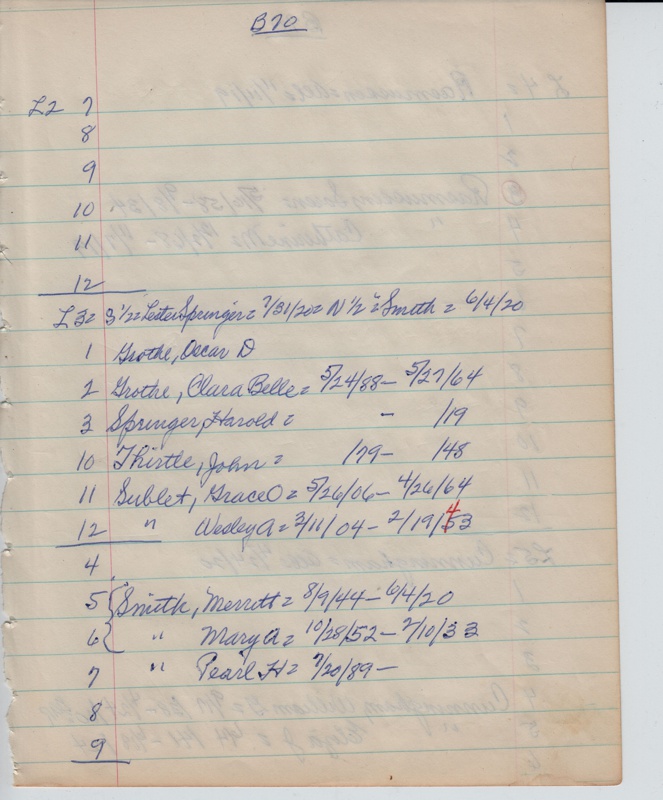 B20
L2 7
8
9
10
11
12
L3= S 1/2= Lester Springer= 7/31/20= N 1/2 = Smith = 6/4/20
1 Grothe, Oscar D
2 Grothe, Clara Belle= 5/24/88- 5/27/64
3 Springer, Harold= - /19
10 Thirtle, John= /79- /48
11 Sublet, Grace O= 5/26/06- 4/26/64
12 " Wesley A= 2/11/04- 2/19/53 4
4
5 Smith, Merrett= 8/9/44- 6/4/20
6 " Mary A= 10/28/52- 2/10/33
7 " Pearl H= 7/20/89-
8
9